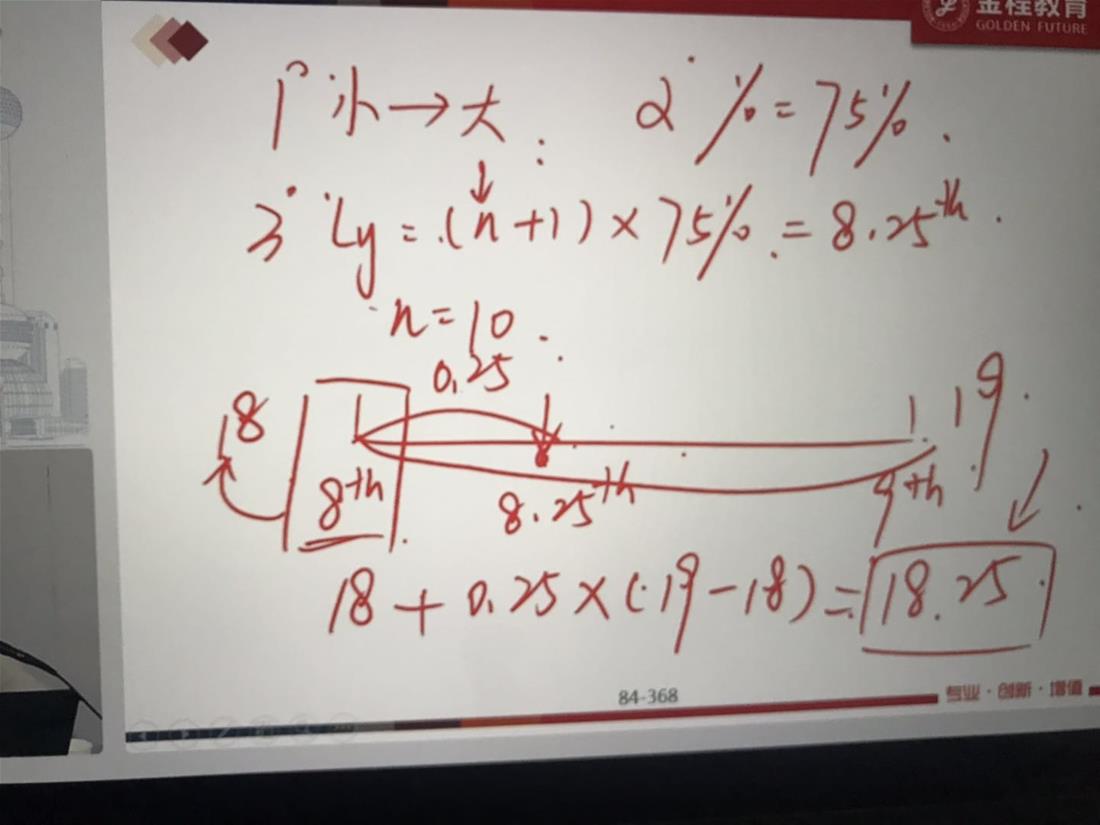 金程教育
GOLDEN FUTURE
1° 小→大: 2° %=75%.
3° Ly=(n+1)×75%=8.25th.
n=10.
0.25
18 19
8th 8.25th 9th
18+0.25×(19-18)=18.25
84-368
专业·创新·增值